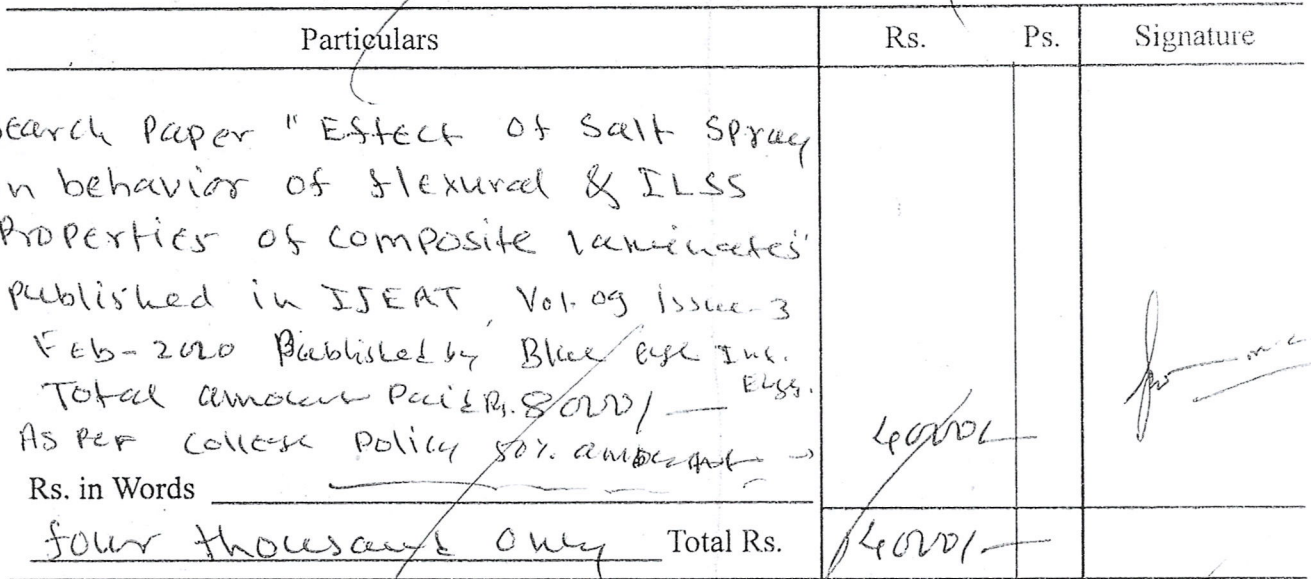 Particulars Rs. Ps. Signature
search Paper " Effect of Salt Spray
n behavior of flexural & ILSS
Properties of composite laminates"
published in IJEAT, Vol. 09 issue-3
Feb-2020 Published by Blue eye Int. Engg.
Total amount Paid Rs. 8000/-
As per college policy 50% amount → 4000/-
Rs. in Words
four thousand only Total Rs. 4000/-